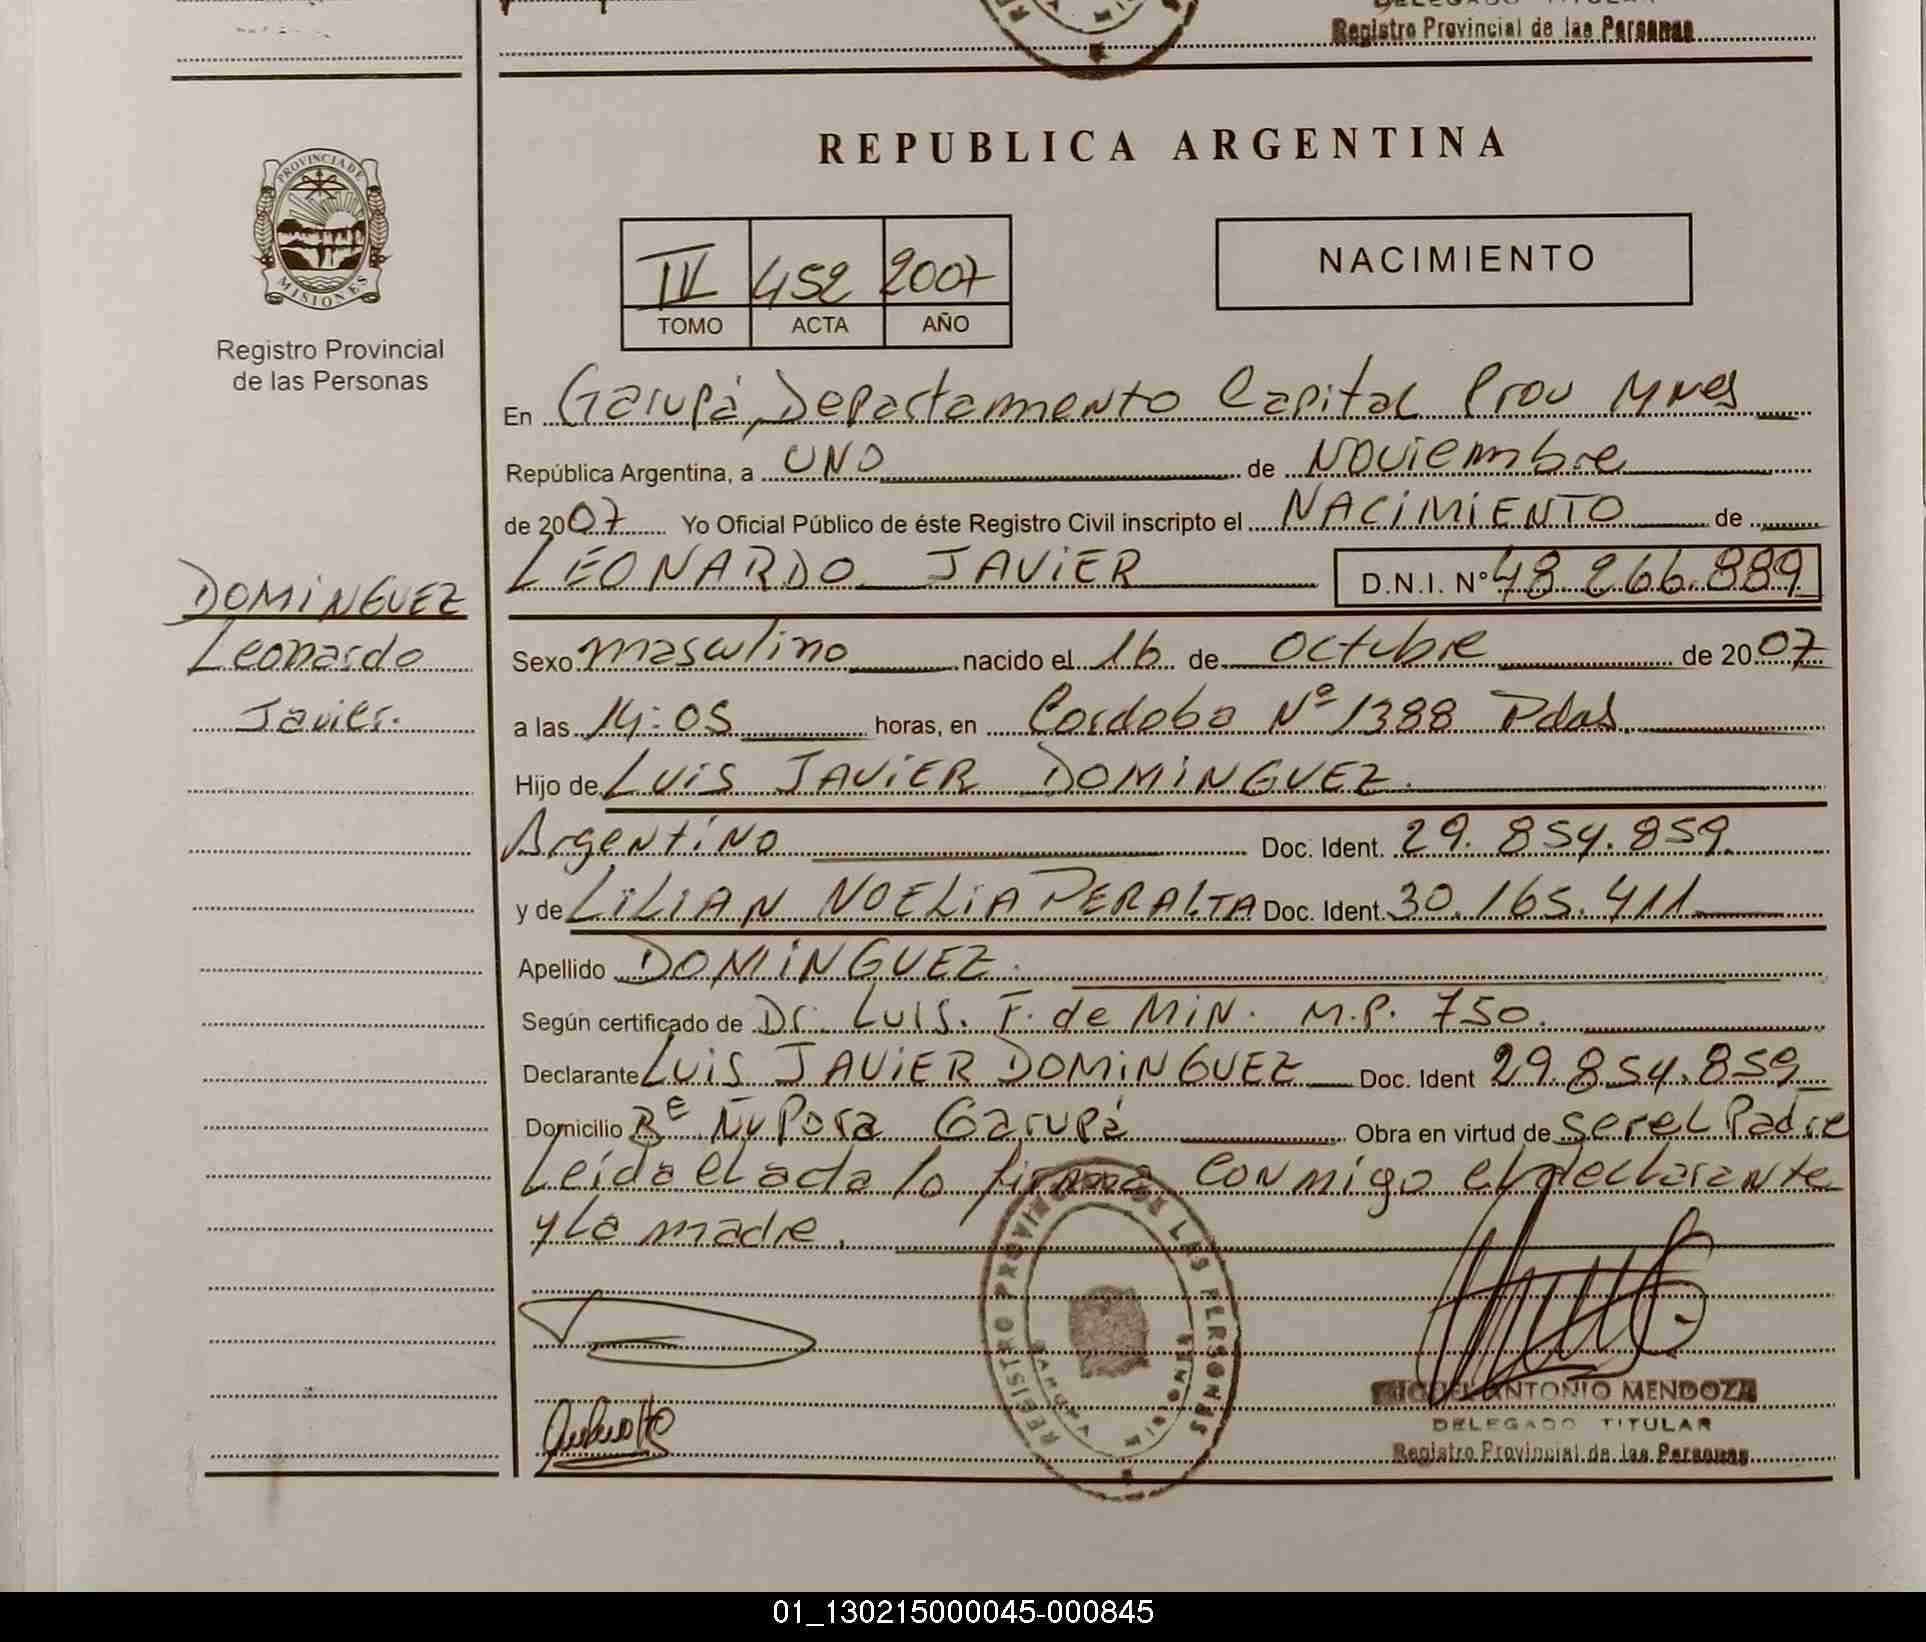 DELEGADO TITULAR
Registro Provincial de las Personas
REPUBLICA ARGENTINA
PROVINCIA DE
MISIONES
Registro Provincial
de las Personas
IV 452 2007
TOMO ACTA AÑO
NACIMIENTO
En Garupá, Departamento Capital Prov Mnes
República Argentina, a UNO de Noviembre
de 2007 Yo Oficial Público de éste Registro Civil inscripto el NACIMIENTO de
LEONARDO JAVIER D.N.I. Nº 48.266.889
DOMINGUEZ
Leonardo
Javier.
Sexo masculino nacido el 16 de Octubre de 2007
a las 14:05 horas, en Cordoba Nº 1388 Pdas.
Hijo de LUIS JAVIER DOMINGUEZ.
Argentino Doc. Ident. 29.854.859.
y de LILIAN NOELIA PERALTA Doc. Ident. 30.165.411
Apellido DOMINGUEZ.
Según certificado de Dr. Luis. F. de Min. M.P. 750.
Declarante LUIS JAVIER DOMINGUEZ Doc. Ident 29.854.859
Domicilio Bº Ñu Pora Garupá Obra en virtud de ser el Padre
Leída el acta lo firma conmigo el declarante
y la madre.
REGISTRO PROVINCIAL DE LAS PERSONAS
MISIONES
MIGUEL ANTONIO MENDOZA
DELEGADO TITULAR
Registro Provincial de las Personas
01_130215000045-000845